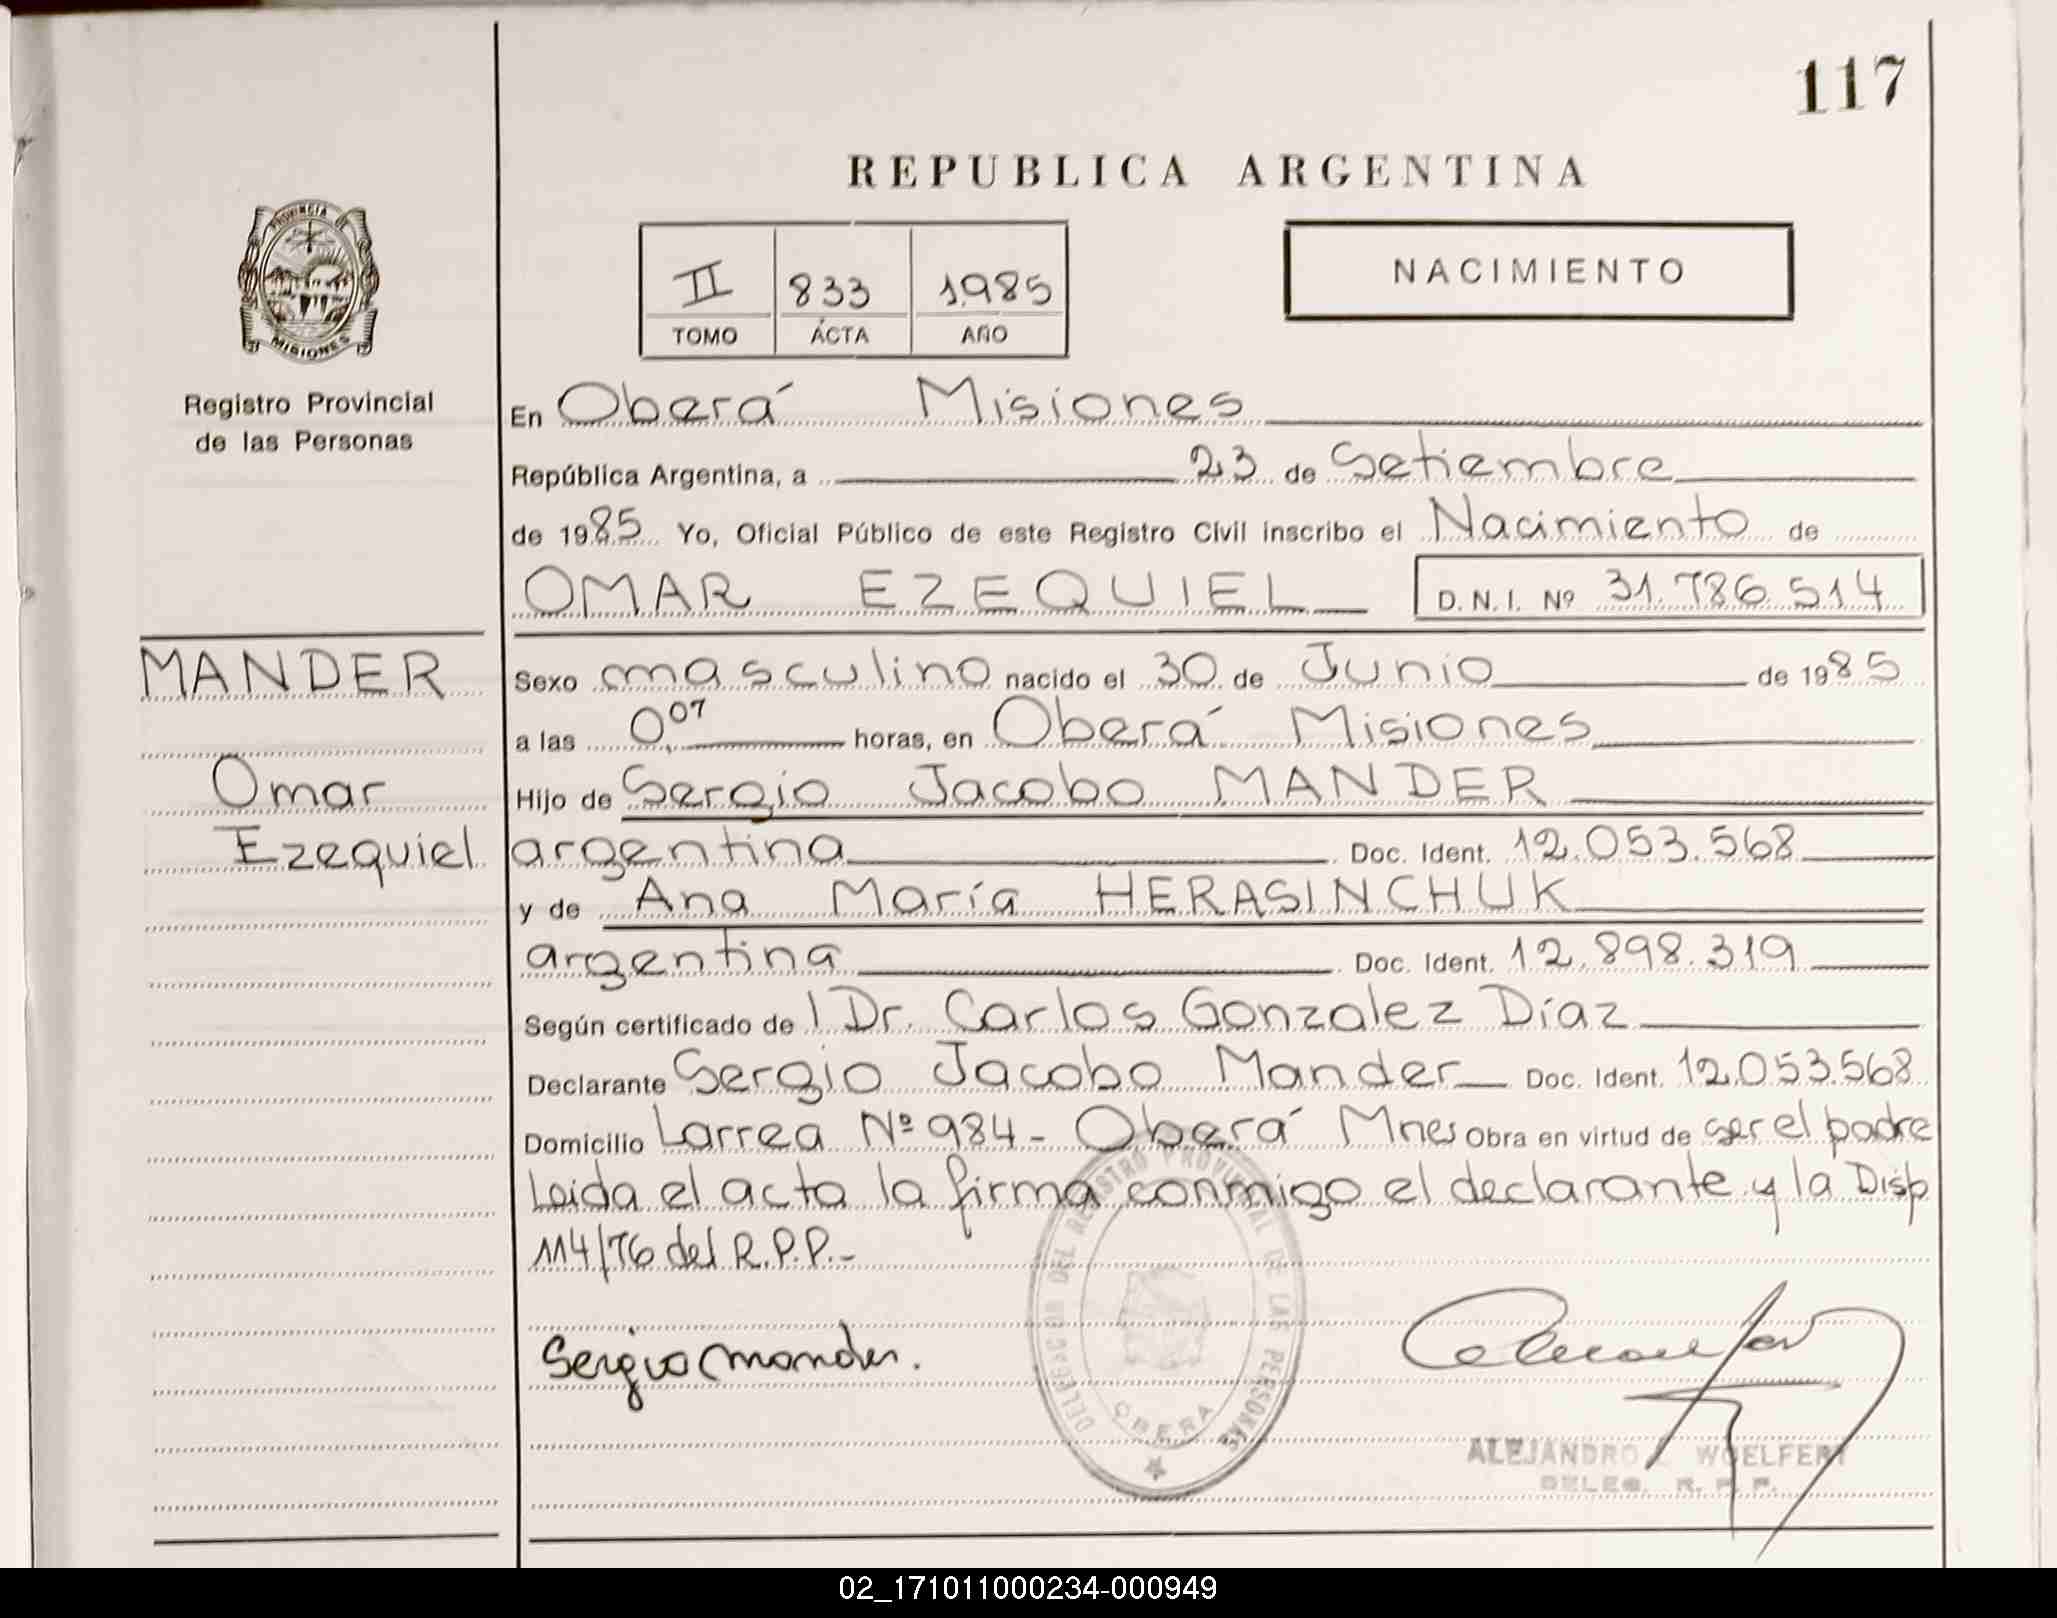 117
REPUBLICA ARGENTINA
PROVINCIA DE
MISIONES
Registro Provincial
de las Personas
II 833 1985
TOMO ACTA AÑO
NACIMIENTO
En Oberá Misiones
República Argentina, a 23 de Setiembre
de 1985 Yo, Oficial Público de este Registro Civil inscribo el Nacimiento de
OMAR EZEQUIEL D.N.I. Nº 31.786.514
MANDER
Omar
Ezequiel
Sexo masculino nacido el 30 de Junio de 1985
a las 0,07 horas, en Oberá Misiones
Hijo de Sergio Jacobo MANDER
argentina Doc. Ident. 12.053.568
y de Ana María HERASINCHUK
argentina Doc. Ident. 12.898.319
Según certificado de l Dr. Carlos Gonzalez Díaz
Declarante Sergio Jacobo Mander Doc. Ident. 12.053.568
Domicilio Larrea Nº 984 - Oberá Mnes Obra en virtud de ser el padre
Leida el acta la firma conmigo el declarante y la Disp
114/76 del R.P.P.-
Sergio Mander.
DELEGACION DEL REGISTRO PROVINCIAL DE LAS PERSONAS
OBERA
ALEJANDRO WOELFERT
DELEG. R. P. P.
02_171011000234-000949